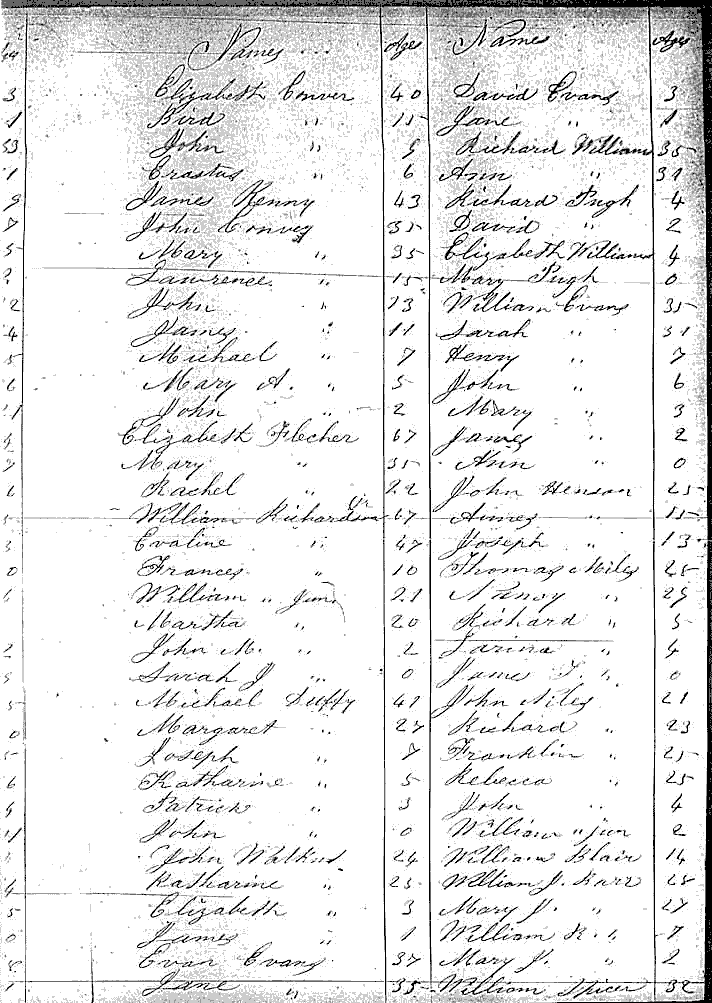 Names Ages Names Ages
3 Elizabeth Conver 40 David Evans 3
1 Bird " 15 Jane " 1
53 John " 9 Richard William 35
1 Erastus " 6 Ann " 31
9 James Kenny 43 Richard Pugh 4
7 John Convey 35 David " 2
5 Mary " 35 Elizabeth Williams 4
2 Lawrence " 15 Mary Pugh 0
2 John " 13 William Evans 35
4 James " 11 Sarah " 31
5 Michael " 7 Henry " 7
6 Mary A. " 5 John " 6
11 John " 2 Mary " 3
4 Elizabeth Flecher 67 James " 2
Mary " 35 Ann " 0
6 Rachel " 22 John Henson 25
5 William Richardson 67 Aimes " 15
3 Evaline " 47 Joseph " 13
0 Frances " 10 Thomas Miles 25
William " Jun 21 Nancy " 29
Martha " 20 Richard " 5
2 John M. " 2 Larina " 4
Sarah J " 0 James " 0
5 Michael Duffy 41 John Niles 21
0 Margaret " 27 Richard " 23
5 Joseph " 7 Franklin " 25
6 Katharine " 5 Rebecca " 25
4 Patrick " 3 John " 4
11 John " 0 William " jun 2
John Watkins 24 William Blair 14
4 Katharine " 25 William J. Karr 25
5 Elizabeth " 3 Mary J. " 27
0 James " 1 William R. " 7
Evan Evans 37 Mary J. " 2
1 Jane " 35 William Spicer 32